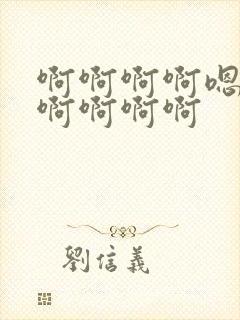 啊啊啊啊嗯
啊啊啊啊
劉信義